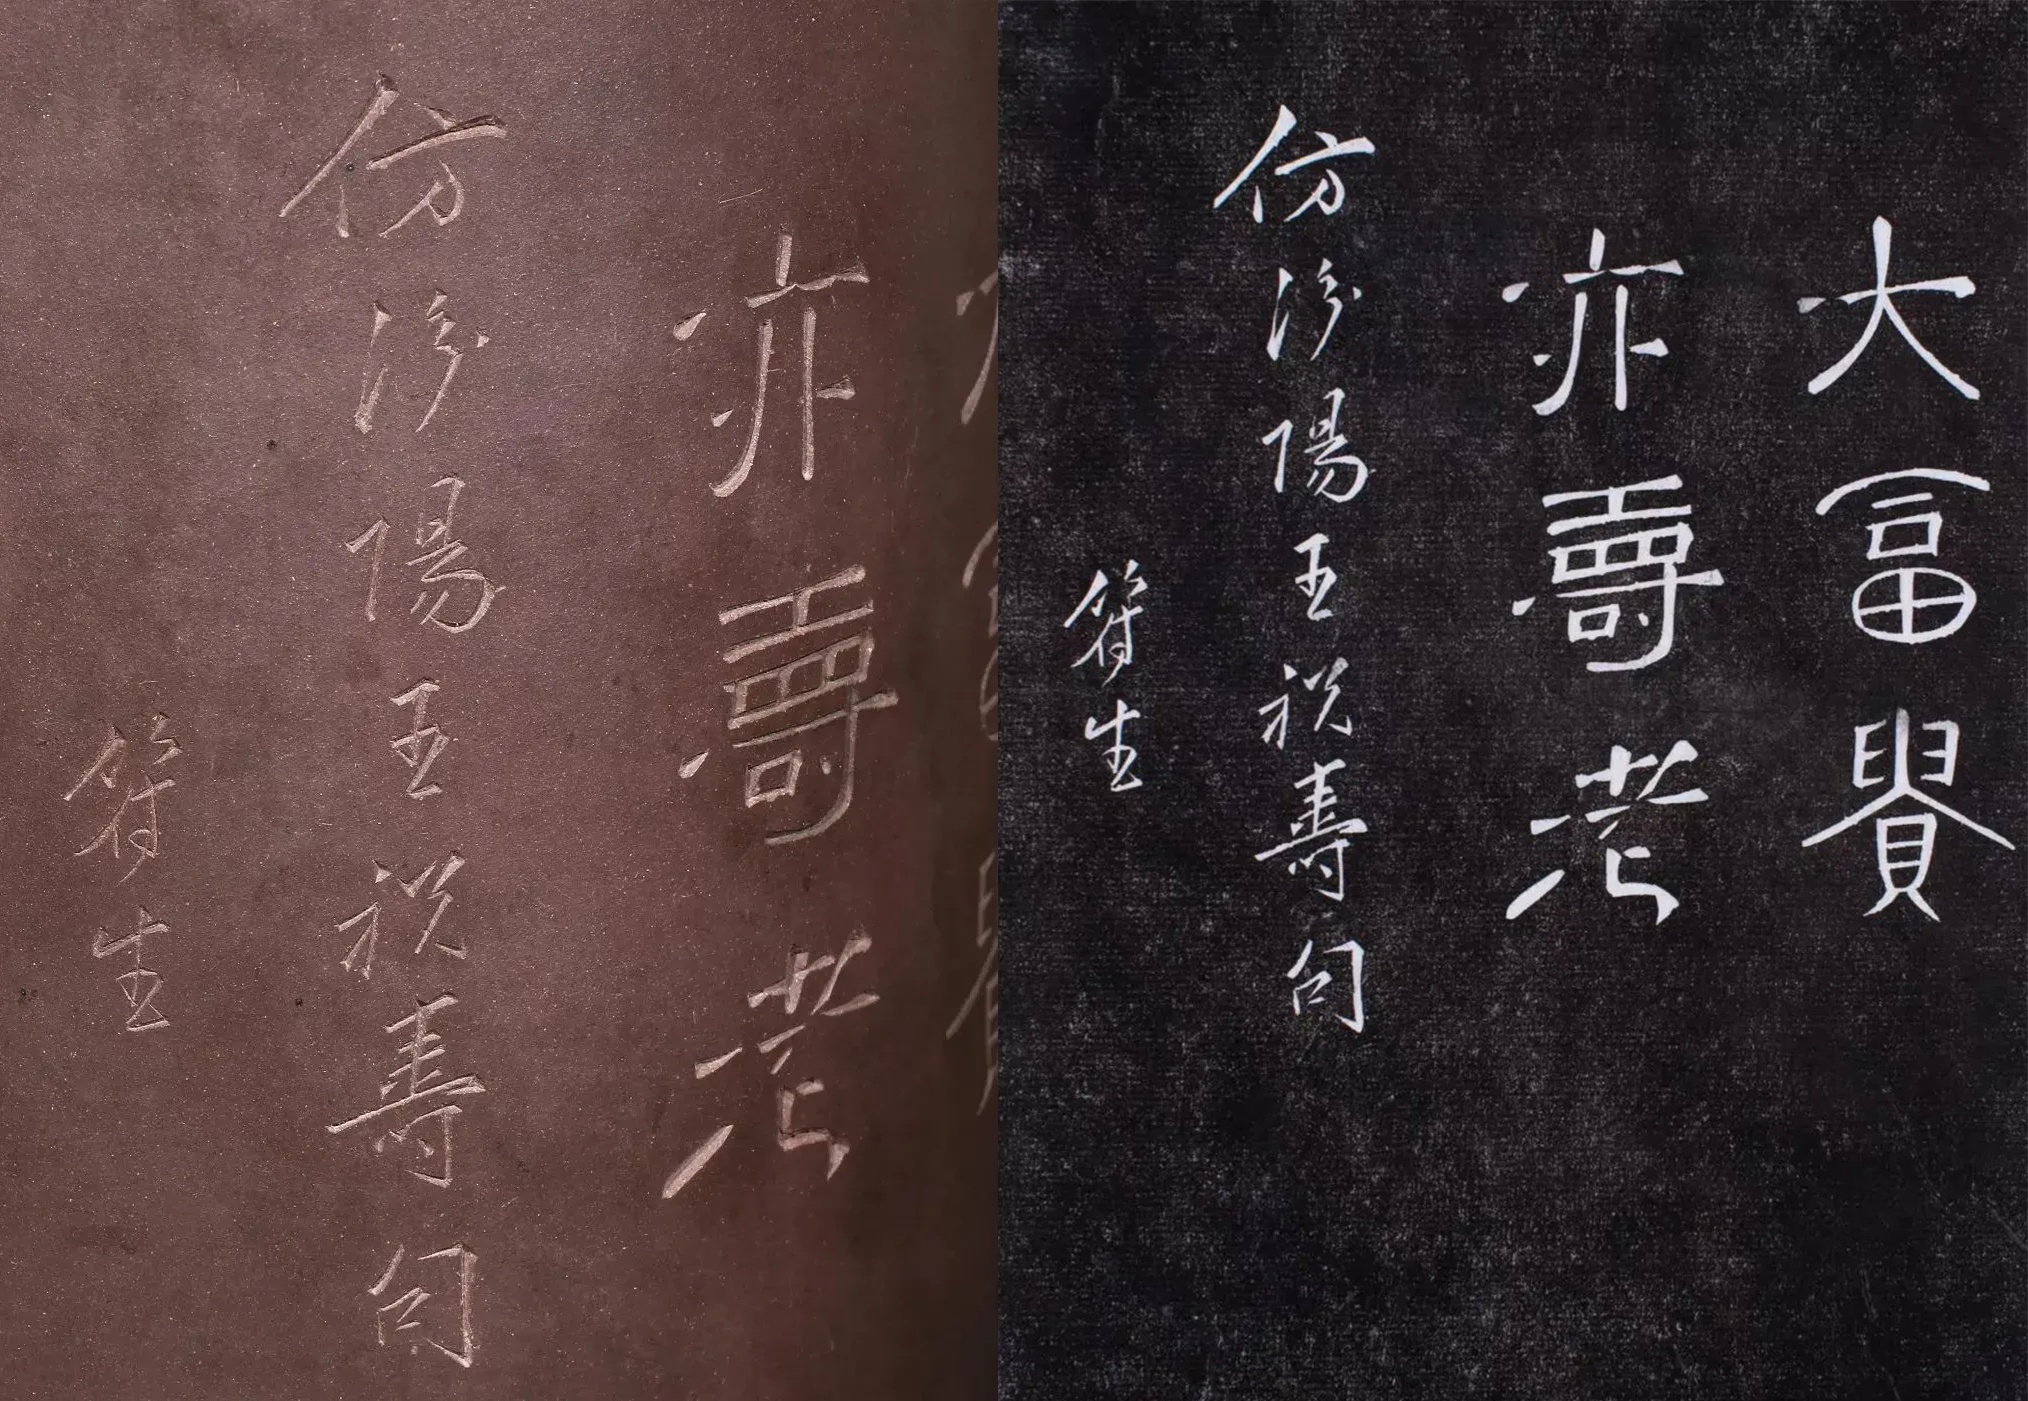 亦壽考
仿汾陽王祝寿句
符生
大富貴
亦壽考
仿汾陽王祝寿句
符生